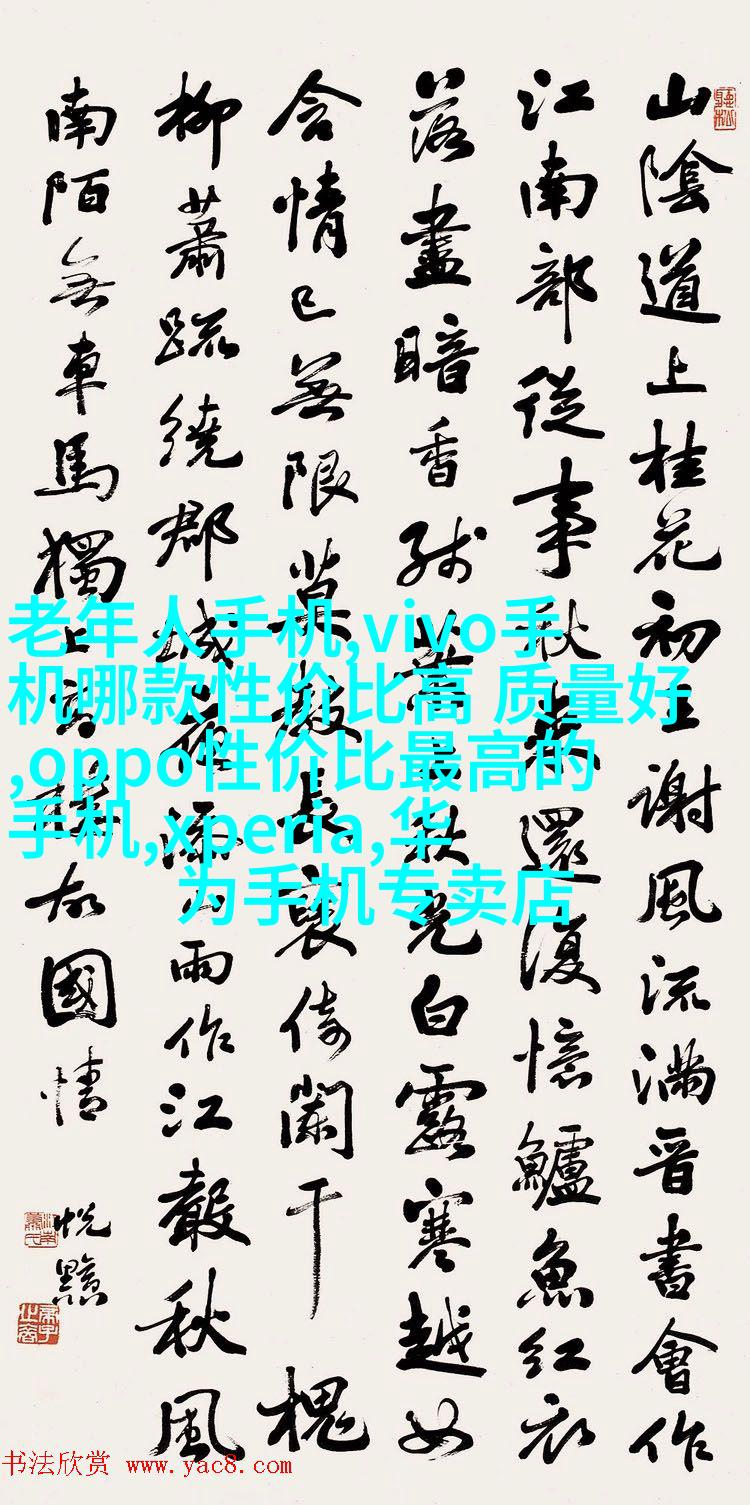 山陰道上桂花初王謝風流滿晋書會作
江南部從事秋還復憶鱸魚紅衣
落盡暗香殘葉秋光白露寒越女
含情已無限莫教長袖倚闌干槐
柳蕭疏繞郡城夜添山雨作江聲秋風
南陌無車馬獨上高樓故國情
老年人手机,vivo手
机哪款性价比高 质量好
,oppo性价比最高的
手机,xperia,华
为手机专卖店
书法欣赏 www.yac8.com